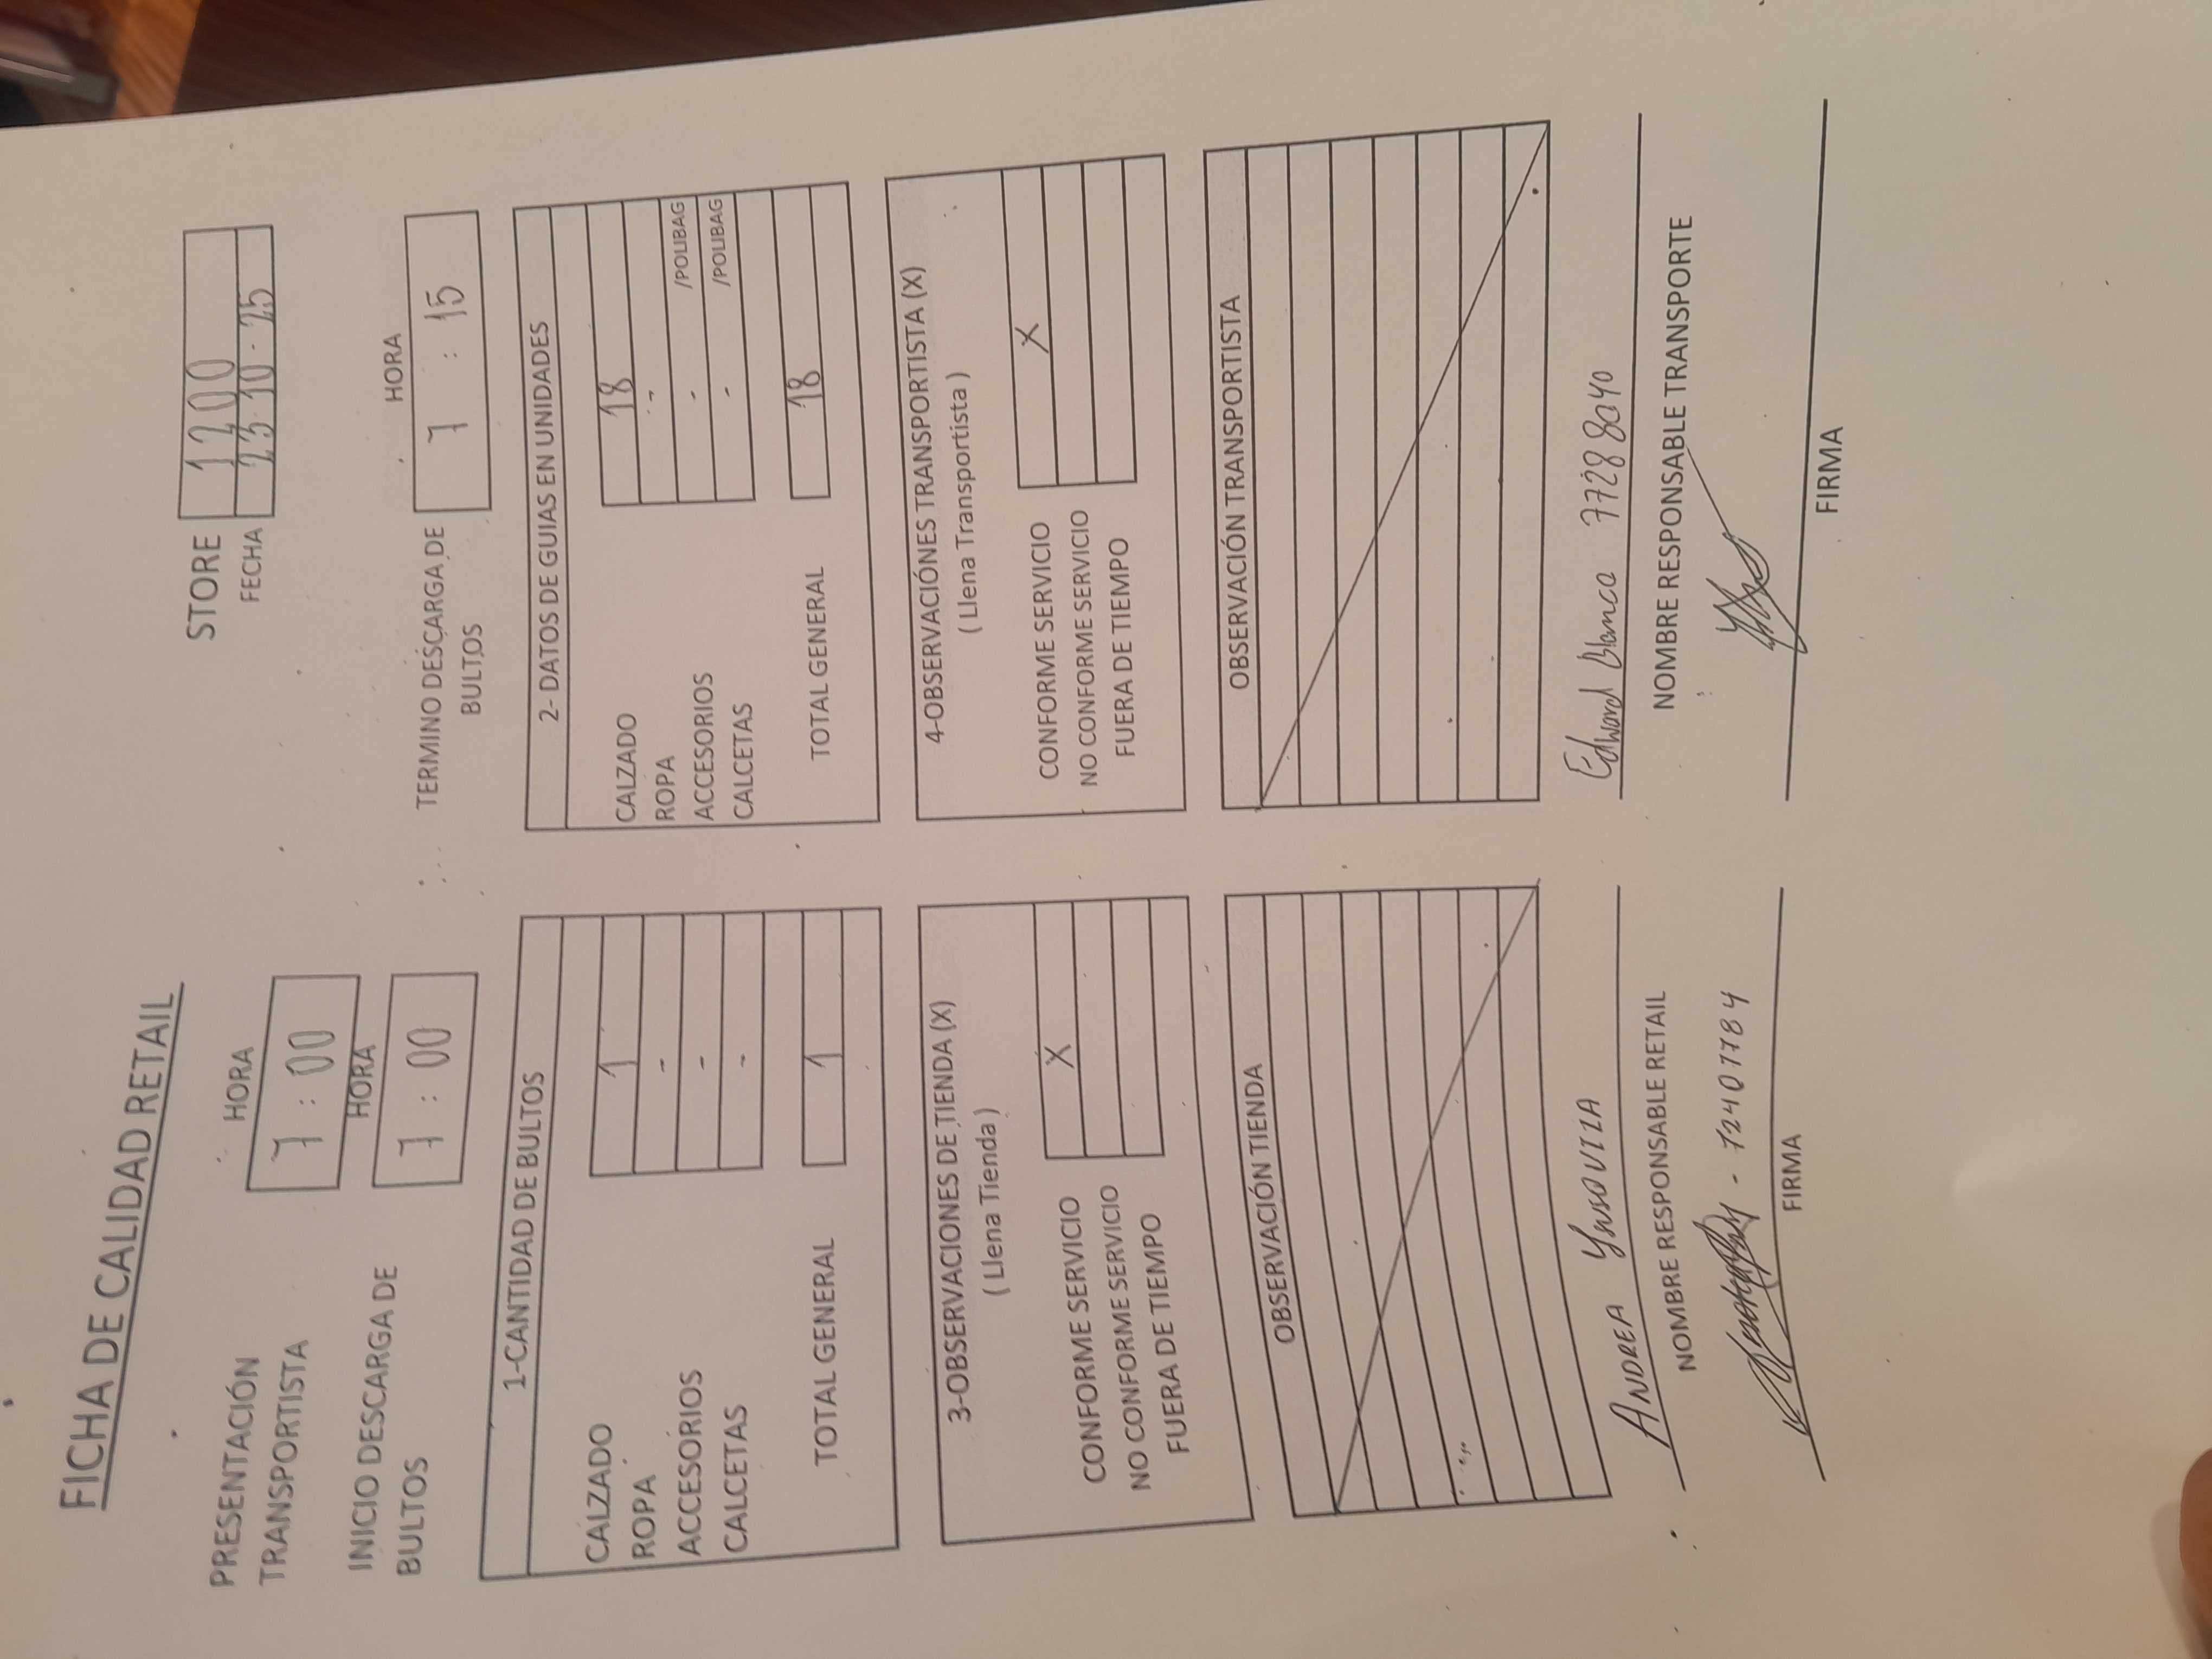 FICHA DE CALIDAD RETAIL
STORE 1200
FECHA 23-10-25
PRESENTACIÓN TRANSPORTISTA
HORA
7 : 00
INICIO DESCARGA DE BULTOS
HORA
7 : 00
TERMINO DESCARGA DE BULTOS
HORA
7 : 15
1-CANTIDAD DE BULTOS
CALZADO 1
ROPA -
ACCESORIOS -
CALCETAS -
TOTAL GENERAL 1
2- DATOS DE GUIAS EN UNIDADES
CALZADO 18
ROPA -
ACCESORIOS - /POLIBAG
CALCETAS - /POLIBAG
TOTAL GENERAL 18
3-OBSERVACIONES DE TIENDA (X)
( Llena Tienda )
CONFORME SERVICIO X
NO CONFORME SERVICIO
FUERA DE TIEMPO
4-OBSERVACIÓNES TRANSPORTISTA (X)
( Llena Transportista )
CONFORME SERVICIO X
NO CONFORME SERVICIO
FUERA DE TIEMPO
OBSERVACIÓN TIENDA
OBSERVACIÓN TRANSPORTISTA
ANDREA
NOMBRE RESPONSABLE RETAIL
- 72401784
FIRMA
Edward Blanca
NOMBRE RESPONSABLE TRANSPORTE
FIRMA